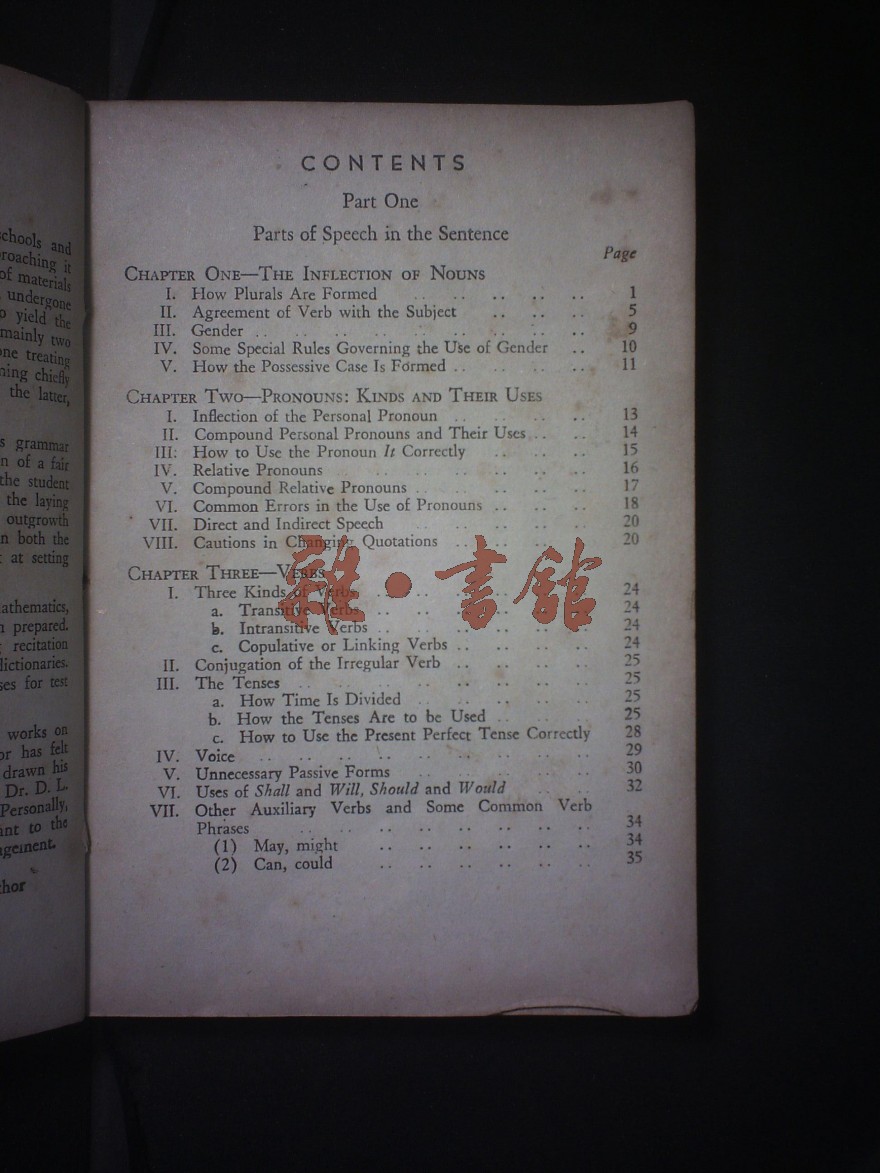 chools and
roaching it
of materials
undergone
o yield the
mainly two
ne treating
ning chiefly
the latter,
s grammar
n of a fair
the student
the laying
outgrowth
n both the
at setting
athematics,
prepared.
recitation
lictionaries.
ses for test
works on
or has felt
drawn his
Dr. D. L.
Personally,
int to the
gement.
hor
CONTENTS
Part One
Parts of Speech in the Sentence
Page
CHAPTER ONE—THE INFLECTION OF NOUNS
I. How Plurals Are Formed .. .. .. .. .. 1
II. Agreement of Verb with the Subject .. .. .. 5
III. Gender .. .. .. .. .. .. .. .. .. 9
IV. Some Special Rules Governing the Use of Gender .. 10
V. How the Possessive Case Is Formed .. .. .. .. 11
CHAPTER TWO—PRONOUNS: KINDS AND THEIR USES
I. Inflection of the Personal Pronoun .. .. .. .. 13
II. Compound Personal Pronouns and Their Uses .. .. 14
III. How to Use the Pronoun It Correctly .. .. .. 15
IV. Relative Pronouns .. .. .. .. .. .. 16
V. Compound Relative Pronouns .. .. .. .. .. 17
VI. Common Errors in the Use of Pronouns .. .. .. 18
VII. Direct and Indirect Speech .. .. .. .. .. 20
VIII. Cautions in Changing Quotations .. .. .. .. 20
CHAPTER THREE—VERBS
I. Three Kinds of Verbs .. .. .. .. .. .. 24
a. Transitive Verbs .. .. .. .. .. .. 24
b. Intransitive Verbs .. .. .. .. .. .. 24
c. Copulative or Linking Verbs .. .. .. .. 24
II. Conjugation of the Irregular Verb .. .. .. .. 25
III. The Tenses .. .. .. .. .. .. .. .. 25
a. How Time Is Divided .. .. .. .. .. 25
b. How the Tenses Are to be Used .. .. .. 25
c. How to Use the Present Perfect Tense Correctly 28
IV. Voice .. .. .. .. .. .. .. .. .. 29
V. Unnecessary Passive Forms .. .. .. .. .. 30
VI. Uses of Shall and Will, Should and Would .. .. 32
VII. Other Auxiliary Verbs and Some Common Verb
Phrases .. .. .. .. .. .. .. .. 34
(1) May, might .. .. .. .. .. .. 34
(2) Can, could .. .. .. .. .. .. 35
雜·書館